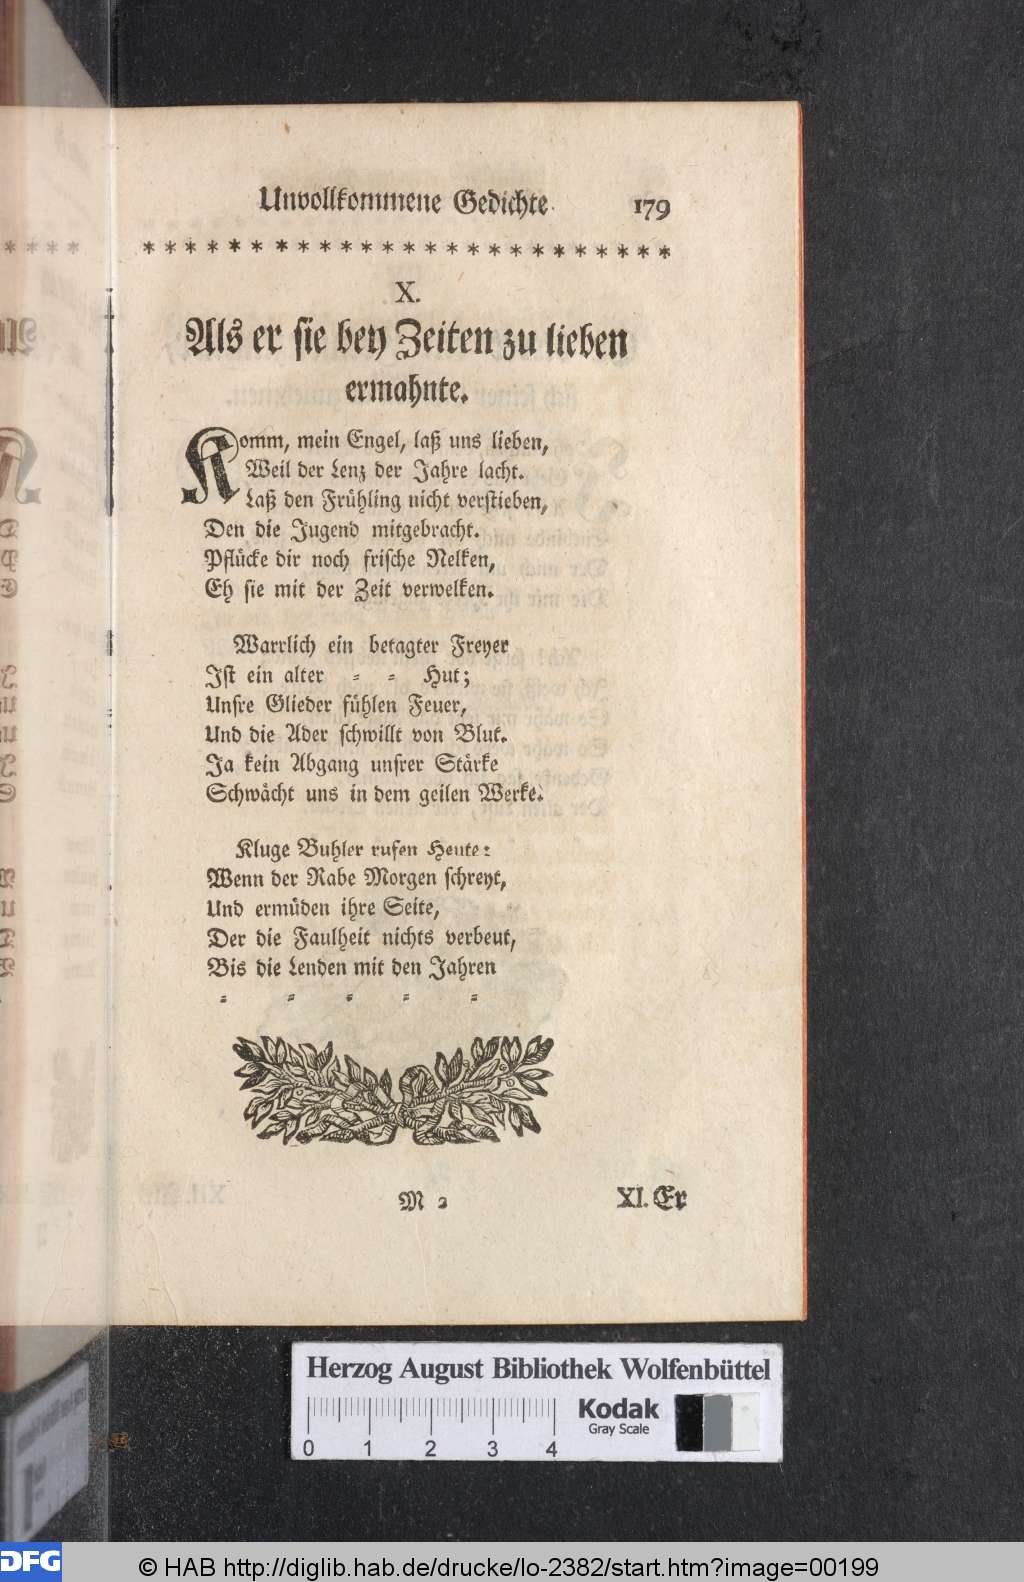 Unvollkommene Gedichte 179
* * * * * * * * * * * * * * * * * * * * * * * * *
X.
Als er sie bey Zeiten zu lieben
ermahnte.
Komm, mein Engel, laß uns lieben,
Weil der Lenz der Jahre lacht.
Laß den Frühling nicht verstieben,
Den die Jugend mitgebracht.
Pflücke dir noch frische Nelken,
Eh sie mit der Zeit verwelken.
Warrlich ein betagter Freyer
Ist ein alter = = Hut;
Unsre Glieder fühlen Feuer,
Und die Ader schwillt von Blut.
Ja kein Abgang unsrer Stärke
Schwächt uns in dem geilen Werke.
Kluge Buhler rufen Heute:
Wenn der Rabe Morgen schreyt,
Und ermüden ihre Seite,
Der die Faulheit nichts verbeut,
Bis die Lenden mit den Jahren
= = = = =
M 2 XI. Er
Herzog August Bibliothek Wolfenbüttel
0 1 2 3 4
Kodak
Gray Scale
DFG
© HAB http://diglib.hab.de/drucke/lo-2382/start.htm?image=00199